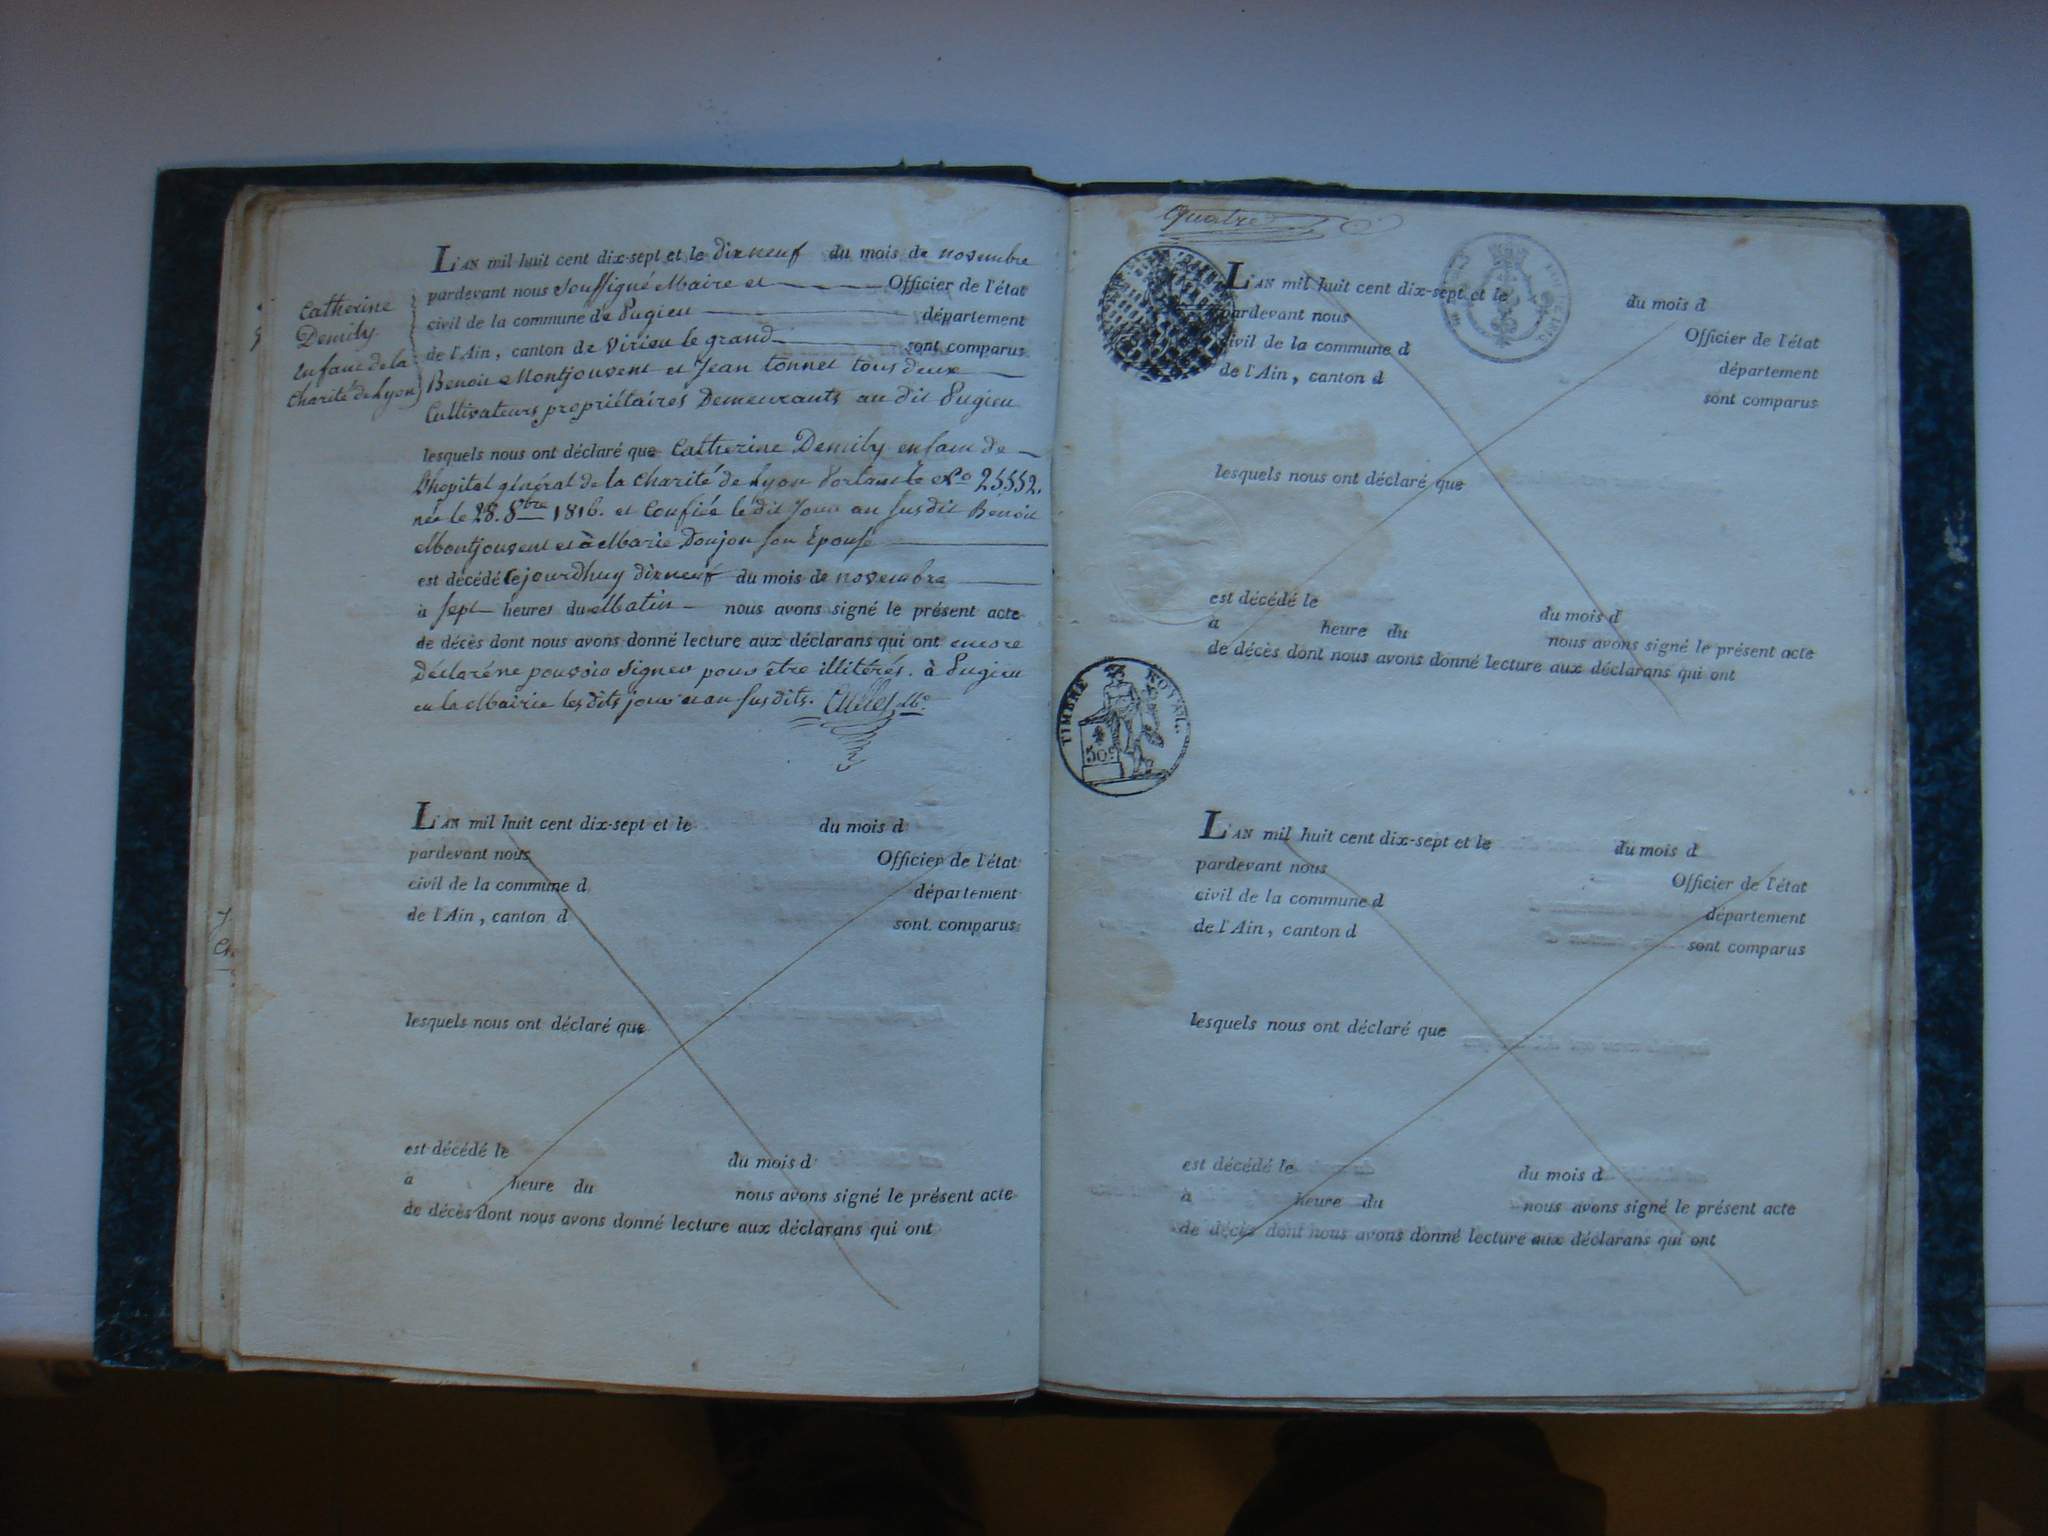 Catherine
Demily
enfant de la
Charité de Lyon
L'AN mil huit cent dix-sept et le dix neuf du mois de novembre
pardevant nous soussigné Maire et Officier de l'état
civil de la commune de Pugieu département
de l'Ain, canton de virieu le grand sont comparus
Benoit Montjouvent et Jean tonnet tous deux
Cultivateurs propriétaires Demeurants au dit Pugieu
lesquels nous ont déclaré que Catherine Demily enfant de
L'hopital général de la charité de Lyon Portant le No 25552.
née le 28. 8bre 1816. et Confiée le dit Jour au susdit Benoit
Montjouvent et à Marie Doujon son Épouse
est décédé Cejourdhuy dix neuf du mois de novembre
à sept heures du Matin nous avons signé le présent acte
de décès dont nous avons donné lecture aux déclarans qui ont encore
Déclaré ne pouvoir signer pour être illitérés. à Pugieu
en la Mairie les dits jour et an susdits.
L'AN mil huit cent dix-sept et le du mois d
pardevant nous Officier de l'état
civil de la commune d département
de l'Ain, canton d sont comparus
lesquels nous ont déclaré que
est décédé le du mois d
a heure du nous avons signé le présent acte
de décès dont nous avons donné lecture aux déclarans qui ont
Quatre
L'AN mil huit cent dix-sept et le du mois d
pardevant nous Officier de l'état
civil de la commune d département
de l'Ain, canton d sont comparus
lesquels nous ont déclaré que
est décédé le du mois d
a heure du nous avons signé le présent acte
de décès dont nous avons donné lecture aux déclarans qui ont
TIMBRE ROYAL
50c
L'AN mil huit cent dix-sept et le du mois d
pardevant nous Officier de l'état
civil de la commune d département
de l'Ain, canton d sont comparus
lesquels nous ont déclaré que
est décédé le du mois d
à heure du nous avons signé le présent acte
de décès dont nous avons donné lecture aux déclarans qui ont